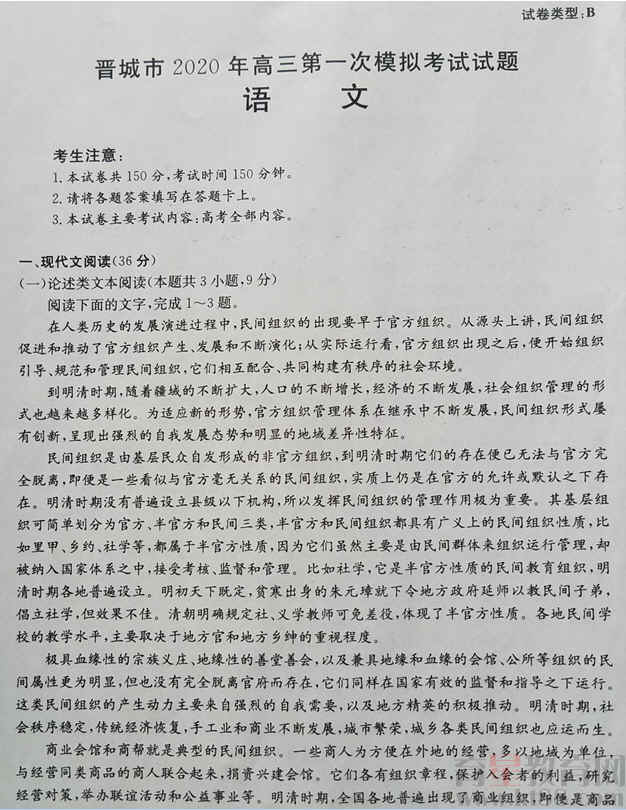 试卷类型:B
晋城市 2020 年高三第一次模拟考试试题
语 文
考生注意:
1.本试卷共150分,考试时间150分钟。
2.请将各题答案填写在答题卡上。
3.本试卷主要考试内容:高考全部内容。
一、现代文阅读(36分)
(一)论述类文本阅读(本题共3小题,9分)
阅读下面的文字,完成1~3题。
在人类历史的发展演进过程中,民间组织的出现要早于官方组织。从源头上讲,民间组织
促进和推动了官方组织产生、发展和不断演化;从实际运行看,官方组织出现之后,便开始组织
引导、规范和管理民间组织,它们相互配合、共同构建有秩序的社会环境。
到明清时期,随着疆域的不断扩大,人口的不断增长,经济的不断发展,社会组织管理的形
式也越来越多样化。为适应新的形势,官方组织管理体系在继承中不断发展,民间组织形式屡
有创新,呈现出强烈的自我发展态势和明显的地域差异性特征。
民间组织是由基层民众自发形成的非官方组织,到明清时期它们的存在便已无法与官方完
全脱离,即便是一些看似与官方毫无关系的民间组织,实质上仍是在官方的允许或默认之下存
在。明清时期没有普遍设立县级以下机构,所以发挥民间组织的管理作用极为重要。其基层组
织可简单划分为官方、半官方和民间三类,半官方和民间组织都具有广义上的民间组织性质,比
如里甲、乡约、社学等,都属于半官方性质,因为它们虽然主要是由民间群体来组织运行管理,却
被纳入国家体系之中,接受考核、监督和管理。比如社学,它是半官方性质的民间教育组织,明
清时期各地普遍设立。明初天下既定,贫寒出身的朱元璋就下令地方政府延师以教民间子弟,
倡立社学,但效果不佳。清朝明确规定社、义学教师可免差役,体现了半官方性质。各地民间学
校的教学水平,主要取决于地方官和地方乡绅的重视程度。
极具血缘性的宗族义庄、地缘性的善堂善会,以及兼具地缘和血缘的会馆、公所等组织的民
间属性更为明显,但也没有完全脱离官府而存在,它们同样在国家有效的监督和指导之下运行。
这类民间组织的产生动力主要来自强烈的自我需要,以及地方精英的积极推动。明清时期,社
会秩序稳定,传统经济恢复,手工业和商业不断发展,城市繁荣,城乡各类民间组织也应运而生。
商业会馆和商帮就是典型的民间组织。一些商人为方便在外地的经营,多以地域为单位,
与经营同类商品的商人联合起来,捐资兴建会馆。它们各有组织章程,保护入会者的利益,研究
经营对策,举办联谊活动和公益事业等。明清时期,全国各地普遍出现了商业组织,即便是商品